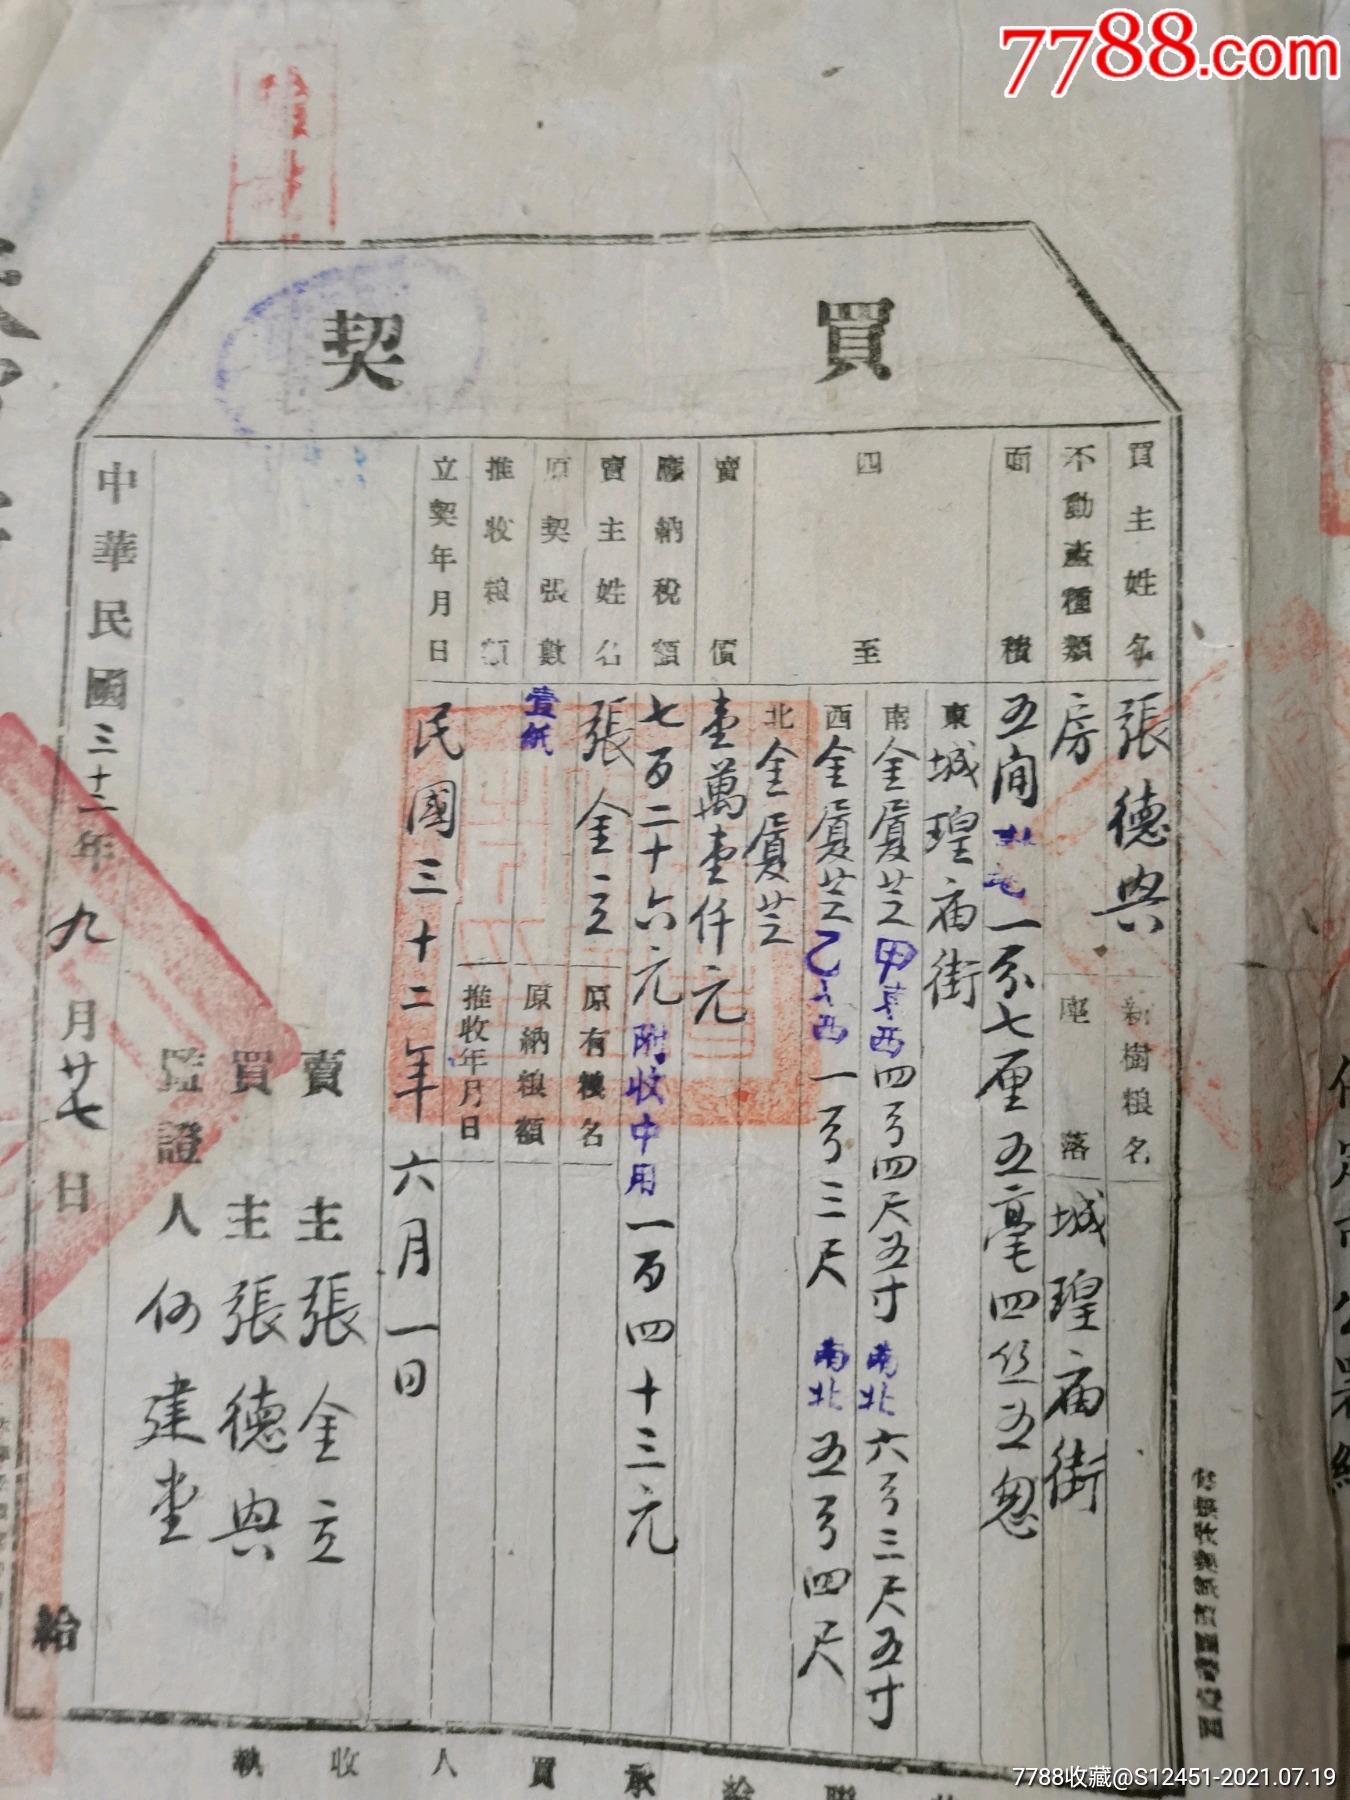 7788.com
買契
買主姓名 張德興 新樹粮名
不動產種類 房 座落 城隍庙街
面積 五间 一分七厘五毫四丝五忽
四至
東 城隍庙街
南 金厦芝 甲東西四弓四尺五寸 南北六弓三尺五寸
西 金厦芝 乙東西一弓三尺 南北五弓四尺
北 金厦芝
賣價 壹萬壹仟元
應納稅額 七百二十六元 附收中用一百四十三元
賣主姓名 張金立 原有粮名
原契張數 壹紙 原納粮額
推收粮額 推收年月日
立契年月日 民國三十二年六月一日
賣主 張金立
買主 張德興
監證人 何建堂
中華民國三十二年九月廿七日
給
買承人收執
7788收藏@S12451-2021.07.19